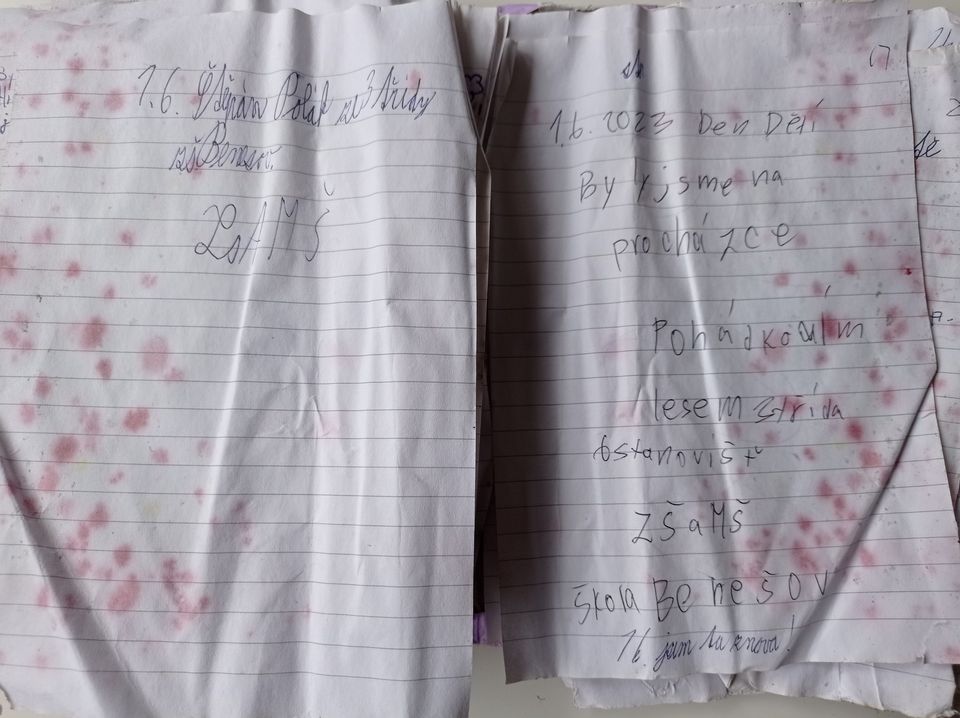 1.6. Štěpán Polák ze 3 třídy
zš Benešov.
ZŠAMŠ
17
1.6.2023 Den Dětí
Byly jsme na
procházce
Pohádkovím
lesem 3třída
6stanovišť
ZŠaMŠ
škola Benešov
1.6. jsem tu znova!